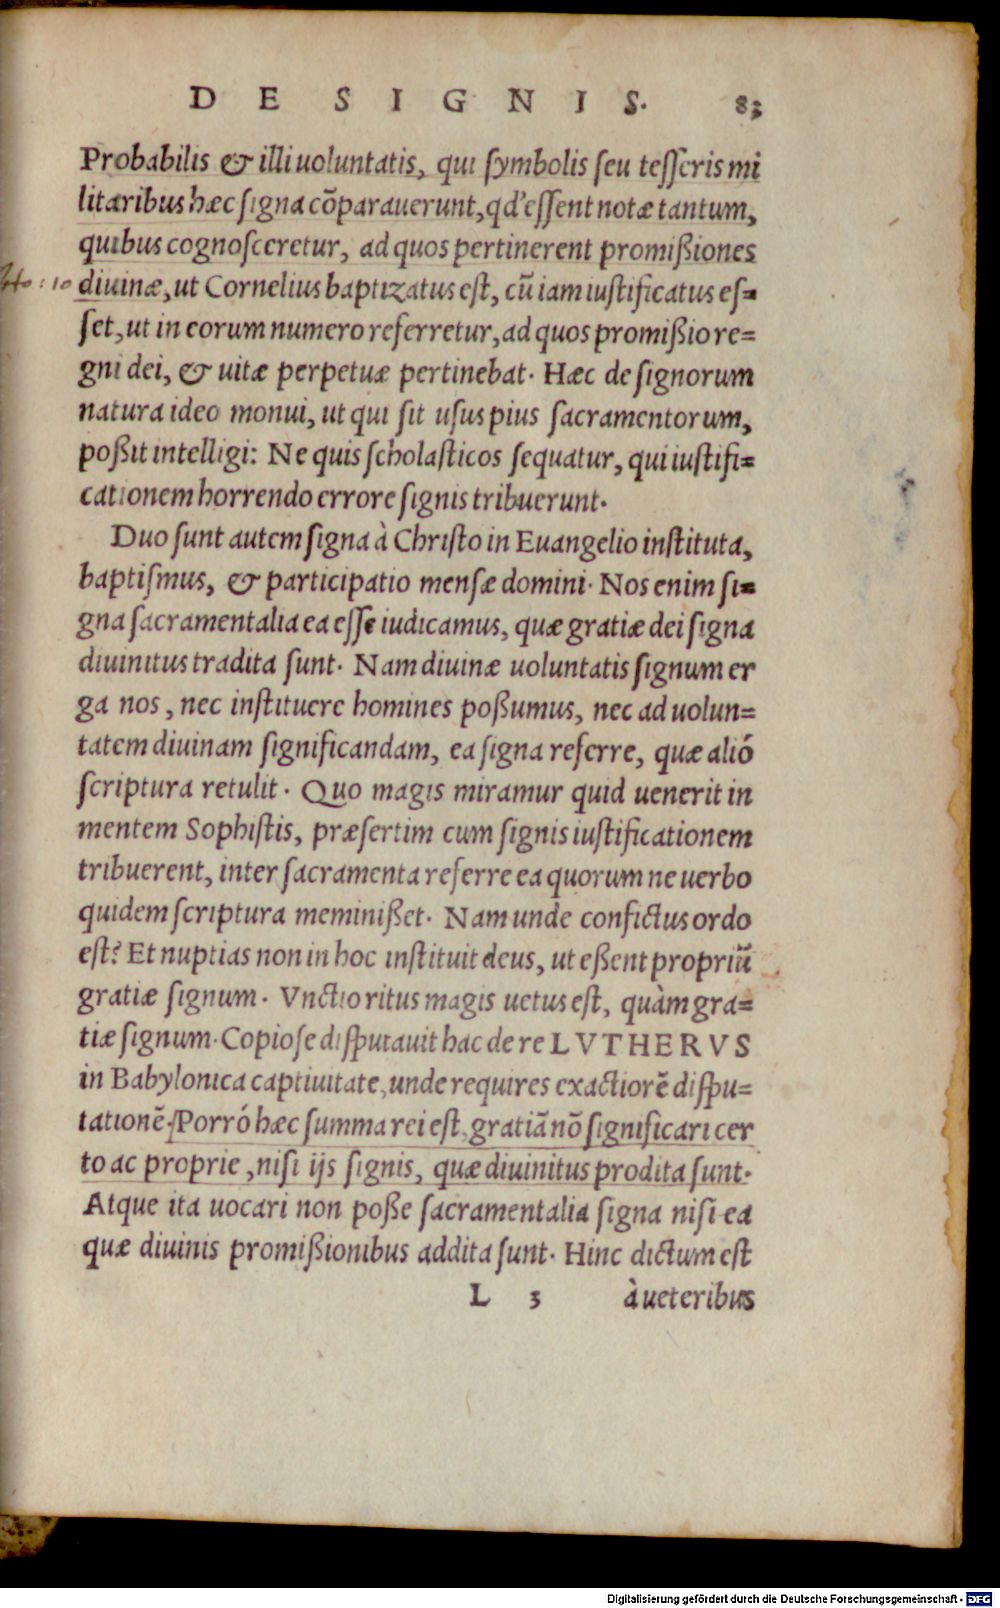 DE SIGNIS. 83
Probabilis & illi uoluntatis, qui ſymbolis ſeu teſſeris mi
litaribus hæc ſigna cõparauerunt, qd' eſſent notæ tantum,
quibus cognoſceretur, ad quos pertinerent promißiones
diuinæ, ut Cornelius baptizatus eſt, cũ iam iuſtificatus eſ=
ſet, ut in eorum numero referretur, ad quos promißio re=
gni dei, & uitæ perpetuæ pertinebat. Hæc de ſignorum
natura ideo monui, ut qui ſit uſus pius ſacramentorum,
poßit intelligi: Ne quis ſcholaſticos ſequatur, qui iuſtifi=
cationem horrendo errore ſignis tribuerunt.
Duo ſunt autem ſigna à Chriſto in Euangelio inſtituta,
baptiſmus, & participatio menſæ domini. Nos enim ſi=
gna ſacramentalia ea eſſe iudicamus, quæ gratiæ dei ſigna
diuinitus tradita ſunt. Nam diuinæ uoluntatis ſignum er
ga nos, nec inſtituere homines poßumus, nec ad uolun=
tatem diuinam ſignificandam, ea ſigna referre, quæ alió
ſcriptura retulit. Quo magis miramur quid uenerit in
mentem Sophiſtis, præſertim cum ſignis iuſtificationem
tribuerent, inter ſacramenta referre ea quorum ne uerbo
quidem ſcriptura meminißet. Nam unde confictus ordo
eſt? Et nuptias non in hoc inſtituit deus, ut eßent propriũ
gratiæ ſignum. Vnctio ritus magis uetus eſt, quàm gra=
tiæ ſignum. Copioſe diſputauit hac de re LVTHERVS
in Babylonica captiuitate, unde requires exactiorẽ diſpu=
tationẽ. Porró hæc ſumma rei eſt, gratiã nõ ſignificari cer
to ac proprie, niſi ijs ſignis, quæ diuinitus prodita ſunt.
Atque ita uocari non poße ſacramentalia ſigna niſi ea
quæ diuinis promißionibus addita ſunt. Hinc dictum eſt
L 3 à ueteribus
Digitalisierung gefördert durch die Deutsche Forschungsgemeinschaft - DFG